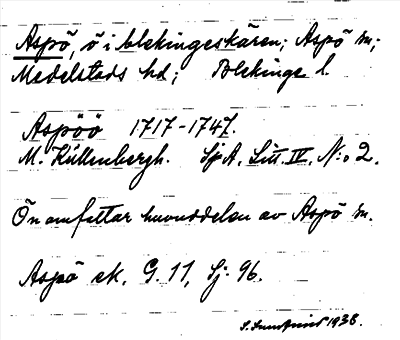 Aspö, ö i blekingeskären; Aspö sn;
Medelstads hd; Blekinge l.
Aspöö 1717-1747.
M. Küllenbergh. SjA. Litt. IV, N:o 2.
Ön omfattar huvuddelen av Aspö sn.
Aspö ek. G. 11, Sj: 96.
1938.